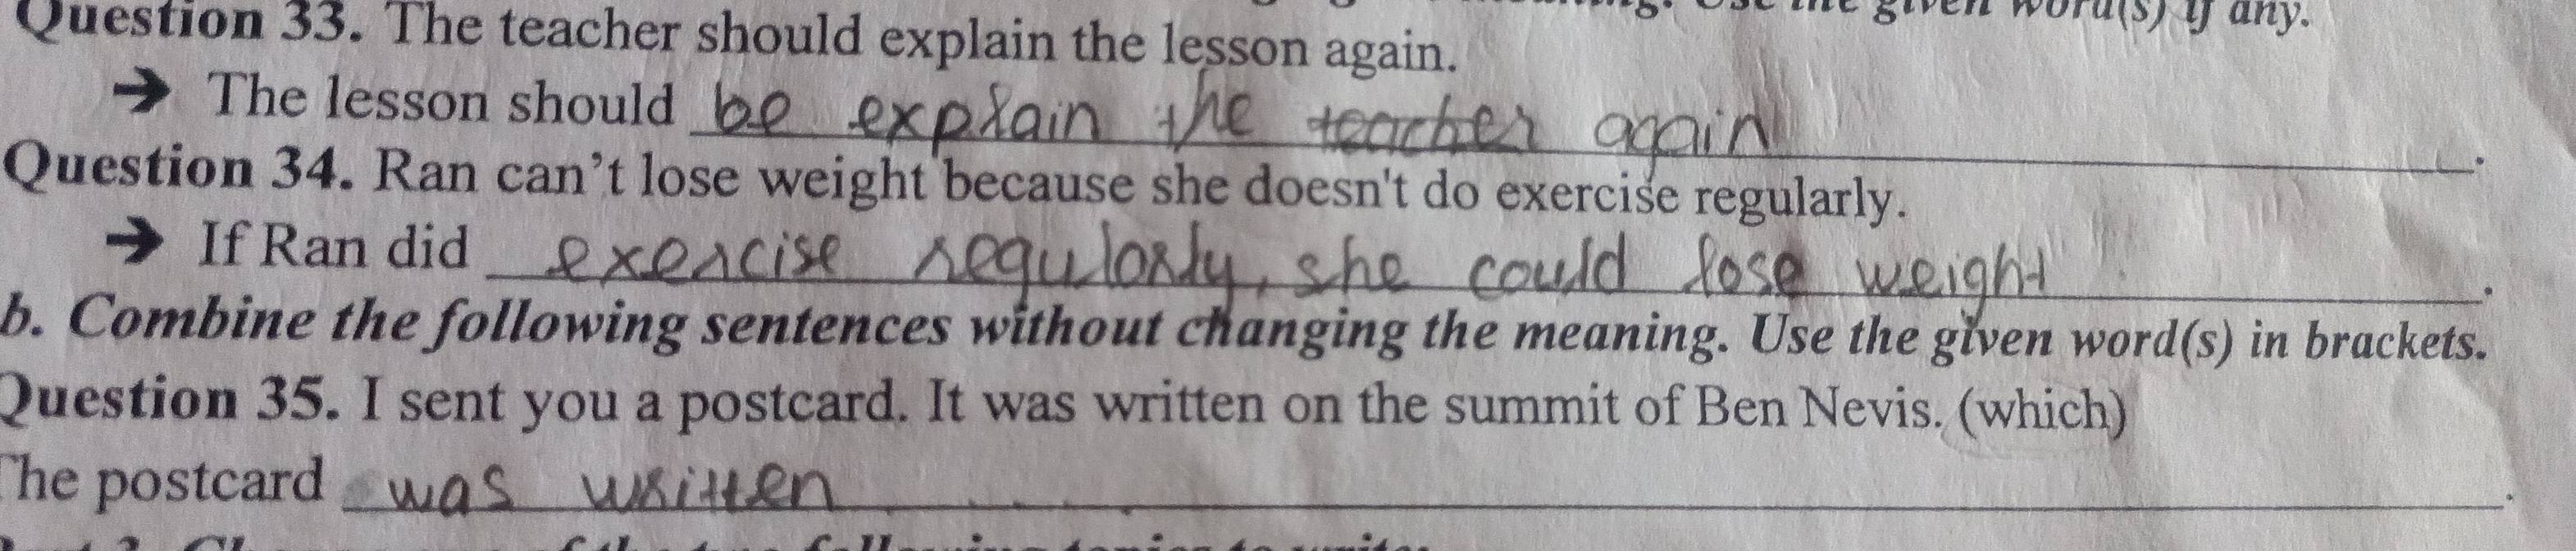 Question 33. The teacher should explain the lesson again. Use the given word(s) if any.
→ The lesson should be explain the teacher again.
Question 34. Ran can't lose weight because she doesn't do exercise regularly.
→ If Ran did exercise regularly, she could lose weight.
b. Combine the following sentences without changing the meaning. Use the given word(s) in brackets.
Question 35. I sent you a postcard. It was written on the summit of Ben Nevis. (which)
The postcard was written.